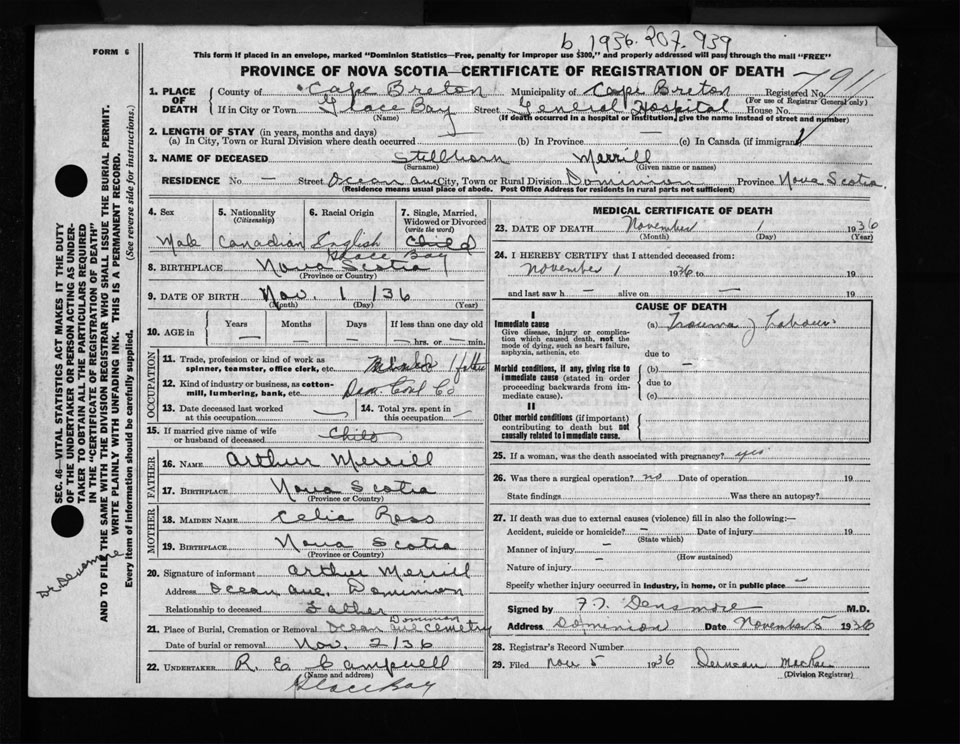 b 1936. 207. 939
FORM 6
This form if placed in an envelope, marked "Dominion Statistics—Free, penalty for improper use $300," and properly addressed will pass through the mail "FREE"
PROVINCE OF NOVA SCOTIA—CERTIFICATE OF REGISTRATION OF DEATH
791
1. PLACE OF DEATH
County of Cape Breton Municipality of Cape Breton Registered No.
(For use of Registrar General only)
If in City or Town Glace Bay Street General Hospital House No.
(Name) (If death occurred in a hospital or institution, give the name instead of street and number)
2. LENGTH OF STAY (in years, months and days)
(a) In City, Town or Rural Division where death occurred (b) In Province — (c) In Canada (if immigrant)
3. NAME OF DECEASED Stillborn Merrill
(Surname) (Given name or names)
RESIDENCE No. — Street Ocean ave City, Town or Rural Division Dominion Province Nova Scotia.
(Residence means usual place of abode. Post Office Address for residents in rural parts not sufficient)
4. Sex
5. Nationality (Citizenship)
6. Racial Origin
7. Single, Married, Widowed or Divorced (write the word)
Male Canadian English Child
Glace Bay
8. BIRTHPLACE Nova Scotia
(Province or Country)
9. DATE OF BIRTH Nov. 1 /36
(Month) (Day) (Year)
10. AGE in Years Months Days If less than one day old
— — — — hrs. or — min.
OCCUPATION
11. Trade, profession or kind of work as spinner, teamster, office clerk, etc.
12. Kind of industry or business, as cotton-mill, lumbering, bank, etc. Dom. Coal Co
13. Date deceased last worked at this occupation —
14. Total yrs. spent in this occupation —
15. If married give name of wife or husband of deceased Child
FATHER
16. NAME Arthur Merrill
17. BIRTHPLACE Nova Scotia
(Province or Country)
MOTHER
18. MAIDEN NAME Celia Ross
19. BIRTHPLACE Nova Scotia
(Province or Country)
20. Signature of informant Arthur Merrill
Address Ocean ave. Dominion
Relationship to deceased Father
Dominion
21. Place of Burial, Cremation or Removal Ocean ave cemetry
Date of burial or removal Nov. 2/36
22. UNDERTAKER R. E. Campbell
(Name and address)
Glace Bay
MEDICAL CERTIFICATE OF DEATH
23. DATE OF DEATH November 1 1936
(Month) (Day) (Year)
24. I HEREBY CERTIFY that I attended deceased from:
November 1 1936 to 19
and last saw h — alive on — 19
CAUSE OF DEATH
I
Immediate cause
Give disease, injury or complication which caused death, not the mode of dying, such as heart failure, asphyxia, asthenia, etc
(a) Trauma of Labour.
due to
Morbid conditions, if any, giving rise to immediate cause (stated in order proceeding backwards from immediate cause).
(b) —
due to
(c)
II
Other morbid conditions (if important) contributing to death but not causally related to immediate cause.
25. If a woman, was the death associated with pregnancy? yes
26. Was there a surgical operation? no Date of operation 19
State findings Was there an autopsy?
27. If death was due to external causes (violence) fill in also the following:—
Accident, suicide or homicide? — Date of injury 19
(State which)
Manner of injury —
(How sustained)
Nature of injury —
Specify whether injury occurred in industry, in home, or in public place —
Signed by F. T. Densmore M.D.
Address Dominion Date November 5 1936
28. Registrar's Record Number
29. Filed Nov 5 1936
(Division Registrar)
SEC. 46—VITAL STATISTICS ACT MAKES IT THE DUTY
OF THE UNDERTAKER OR PERSON ACTING AS UNDER-
TAKER TO OBTAIN ALL THE PARTICULARS REQUIRED
IN THE "CERTIFICATE OF REGISTRATION OF DEATH"
AND TO FILE THE SAME WITH THE DIVISION REGISTRAR WHO SHALL ISSUE THE BURIAL PERMIT.
WRITE PLAINLY WITH UNFADING INK. THIS IS A PERMANENT RECORD.
Every item of information should be carefully supplied. (See reverse side for instructions.)
Dr Densmore